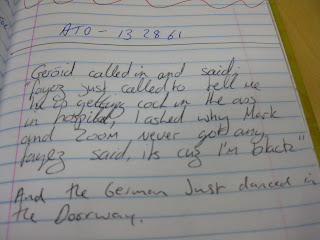 ATO - 13 28 61
"Geróid called in and said,
"Layez just called to tell me
he is getting cock in the ass
in hospital, I asked why Mark
and Zoom never got any
Layez said, its cuz I'm black"
And the German Just danced in
the Doorway.